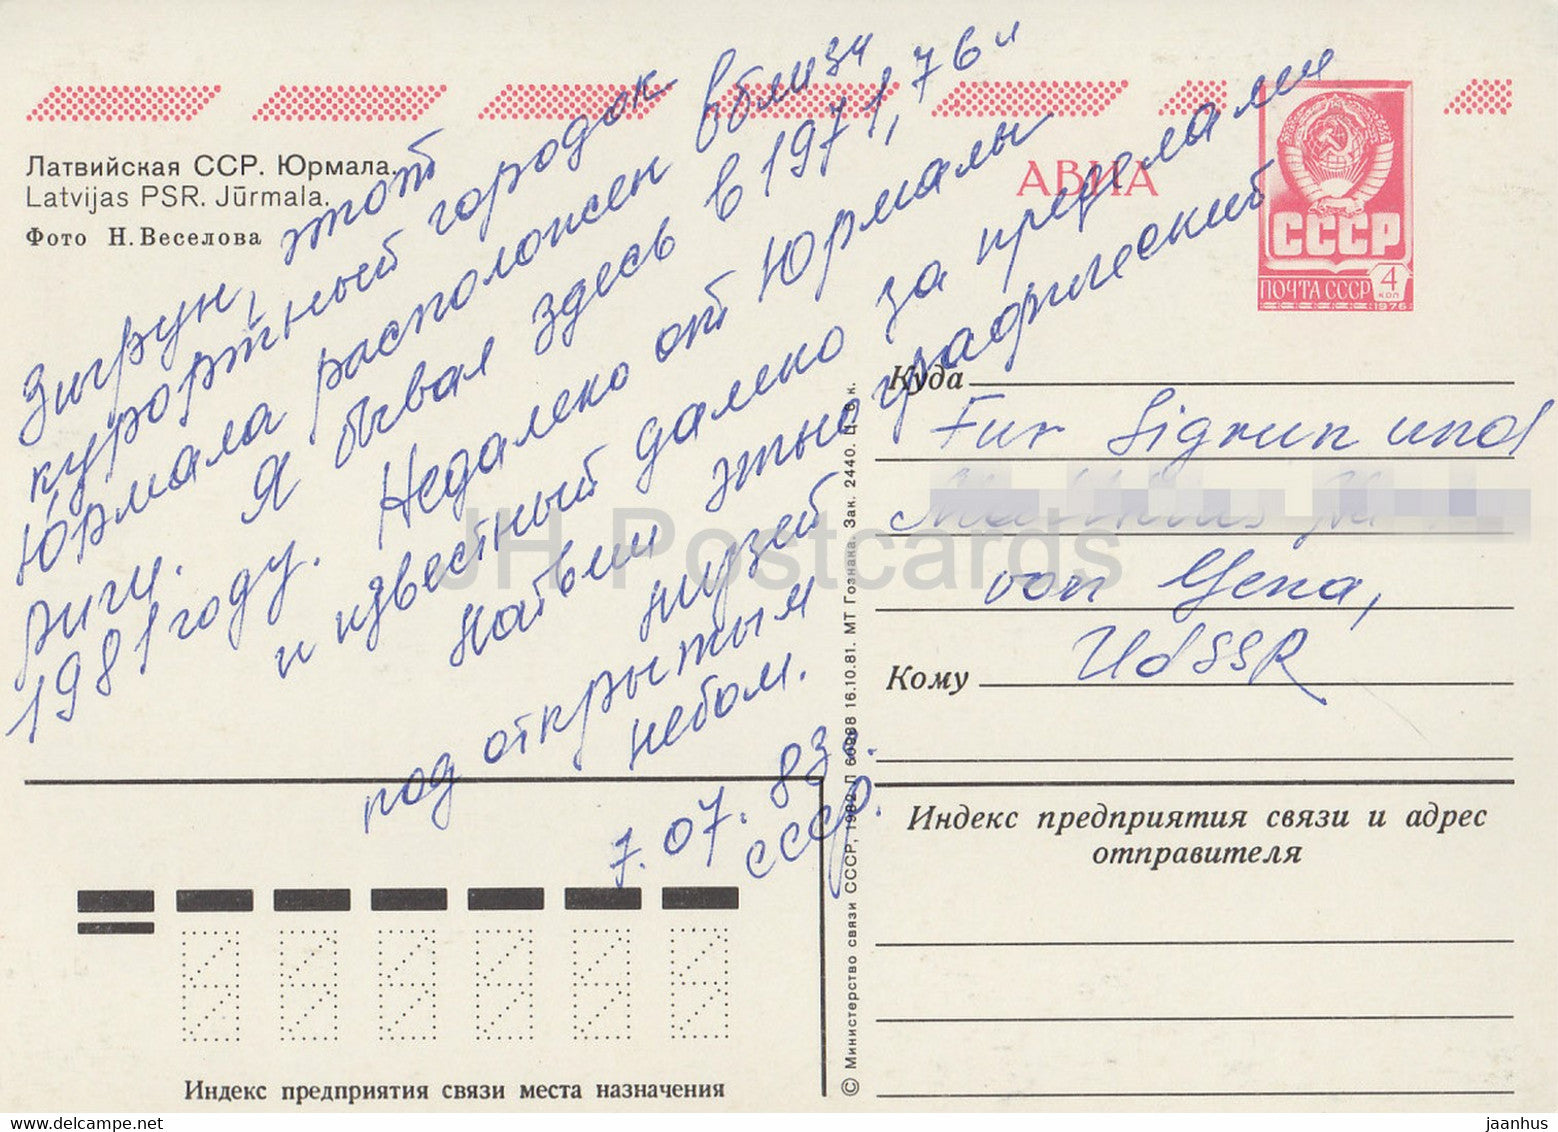 Латвийская ССР. Юрмала.
Latvijas PSR. Jūrmala.
Фото Н. Веселова
Зигрун, этот
курортный городок
Юрмала расположен вблизи
Риги. Я бывал здесь в 1971, 76 и
1981 году. Недалеко от Юрмалы
и известный далеко за пределами
Латвии этнографический
музей
под открытым
небом.
7.07.83.
СССР.
АВИА
СССР
ПОЧТА СССР 4
КОП
1978
Куда
Fur Sigrun und
von Gena,
UdSSR
Кому
Индекс предприятия связи и адрес
отправителя
Индекс предприятия связи места назначения
© Министерство связи СССР, 1982. П 60288 16.10.81. МТ Гознака. Зак. 2440. Ц. 6 к.
JH Postcards
www.delcampe.net
jaanhus